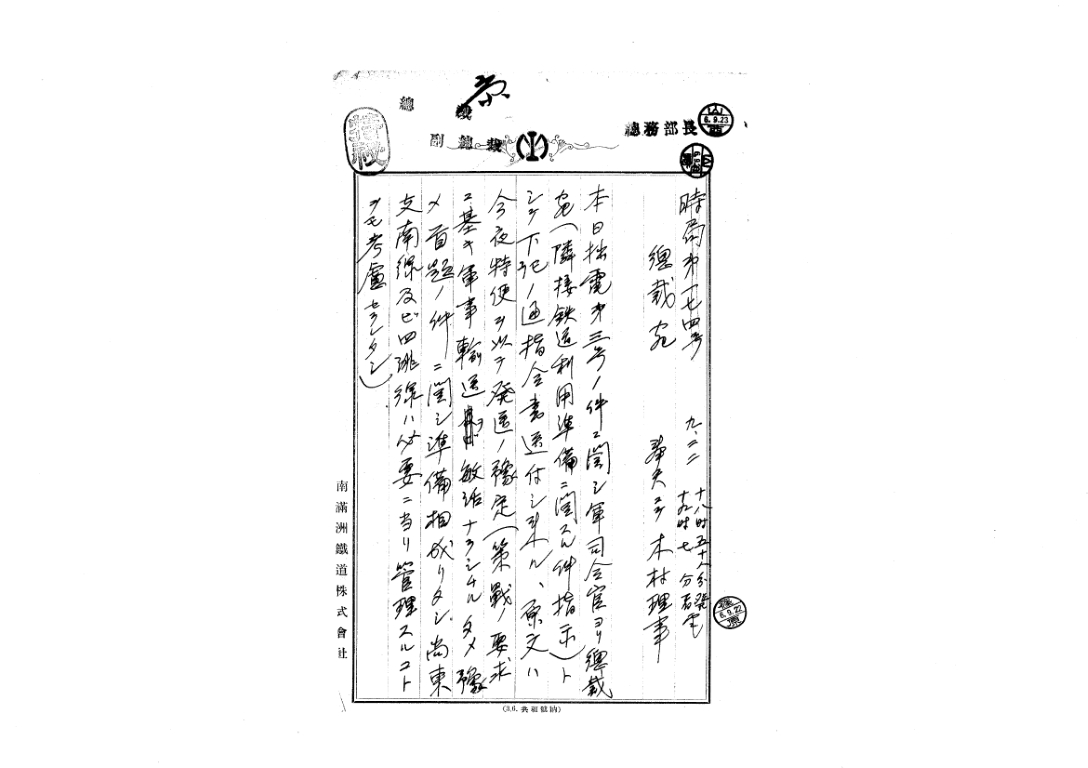 總裁
副總裁
總務部長
6.9.23
時局第一七四号
九、二二 十八時五十八分發電
十九時七分着電
總裁宛
奉天ニテ 木村理事
本日拙電第三号ノ件ニ関シ軍司令官ヨリ總裁
宛(隣接鉄道利用準備ニ関スル件指示)ト
シテ下記ノ通指令書送付シ来ル、原文ハ
今夜特便ヲ以テ発送ノ豫定(策戰ノ要求
ニ基キ軍事輸送ヲ敏活ナラシムル タメ豫
メ首題ノ件ニ関シ準備相成リタシ尚東
支南線及ビ四洮線ハ必要ニ当リ管理スルコト
ヲモ考慮セラレタシ)
6.9.22
南滿洲鐵道株式會社